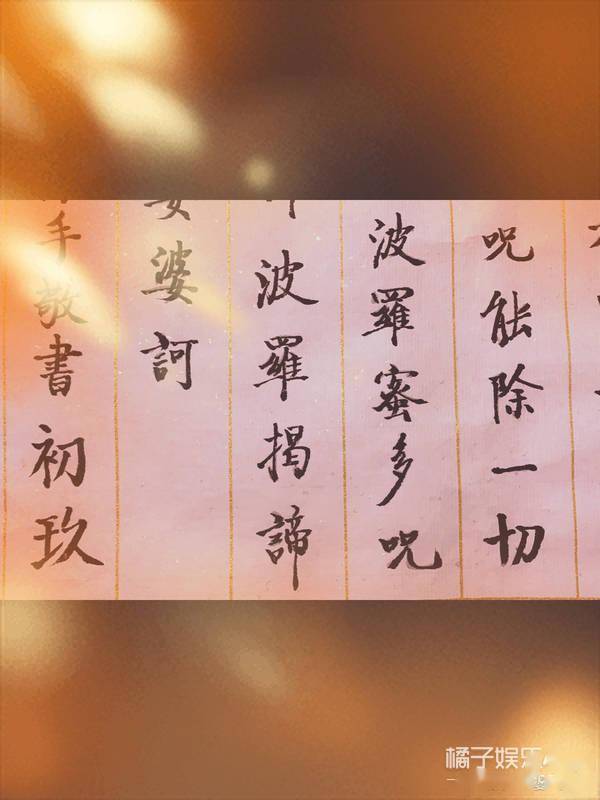 呪能除一切
波羅蜜多呪
波羅揭諦
婆訶
手敬書初玖
橘子娱乐